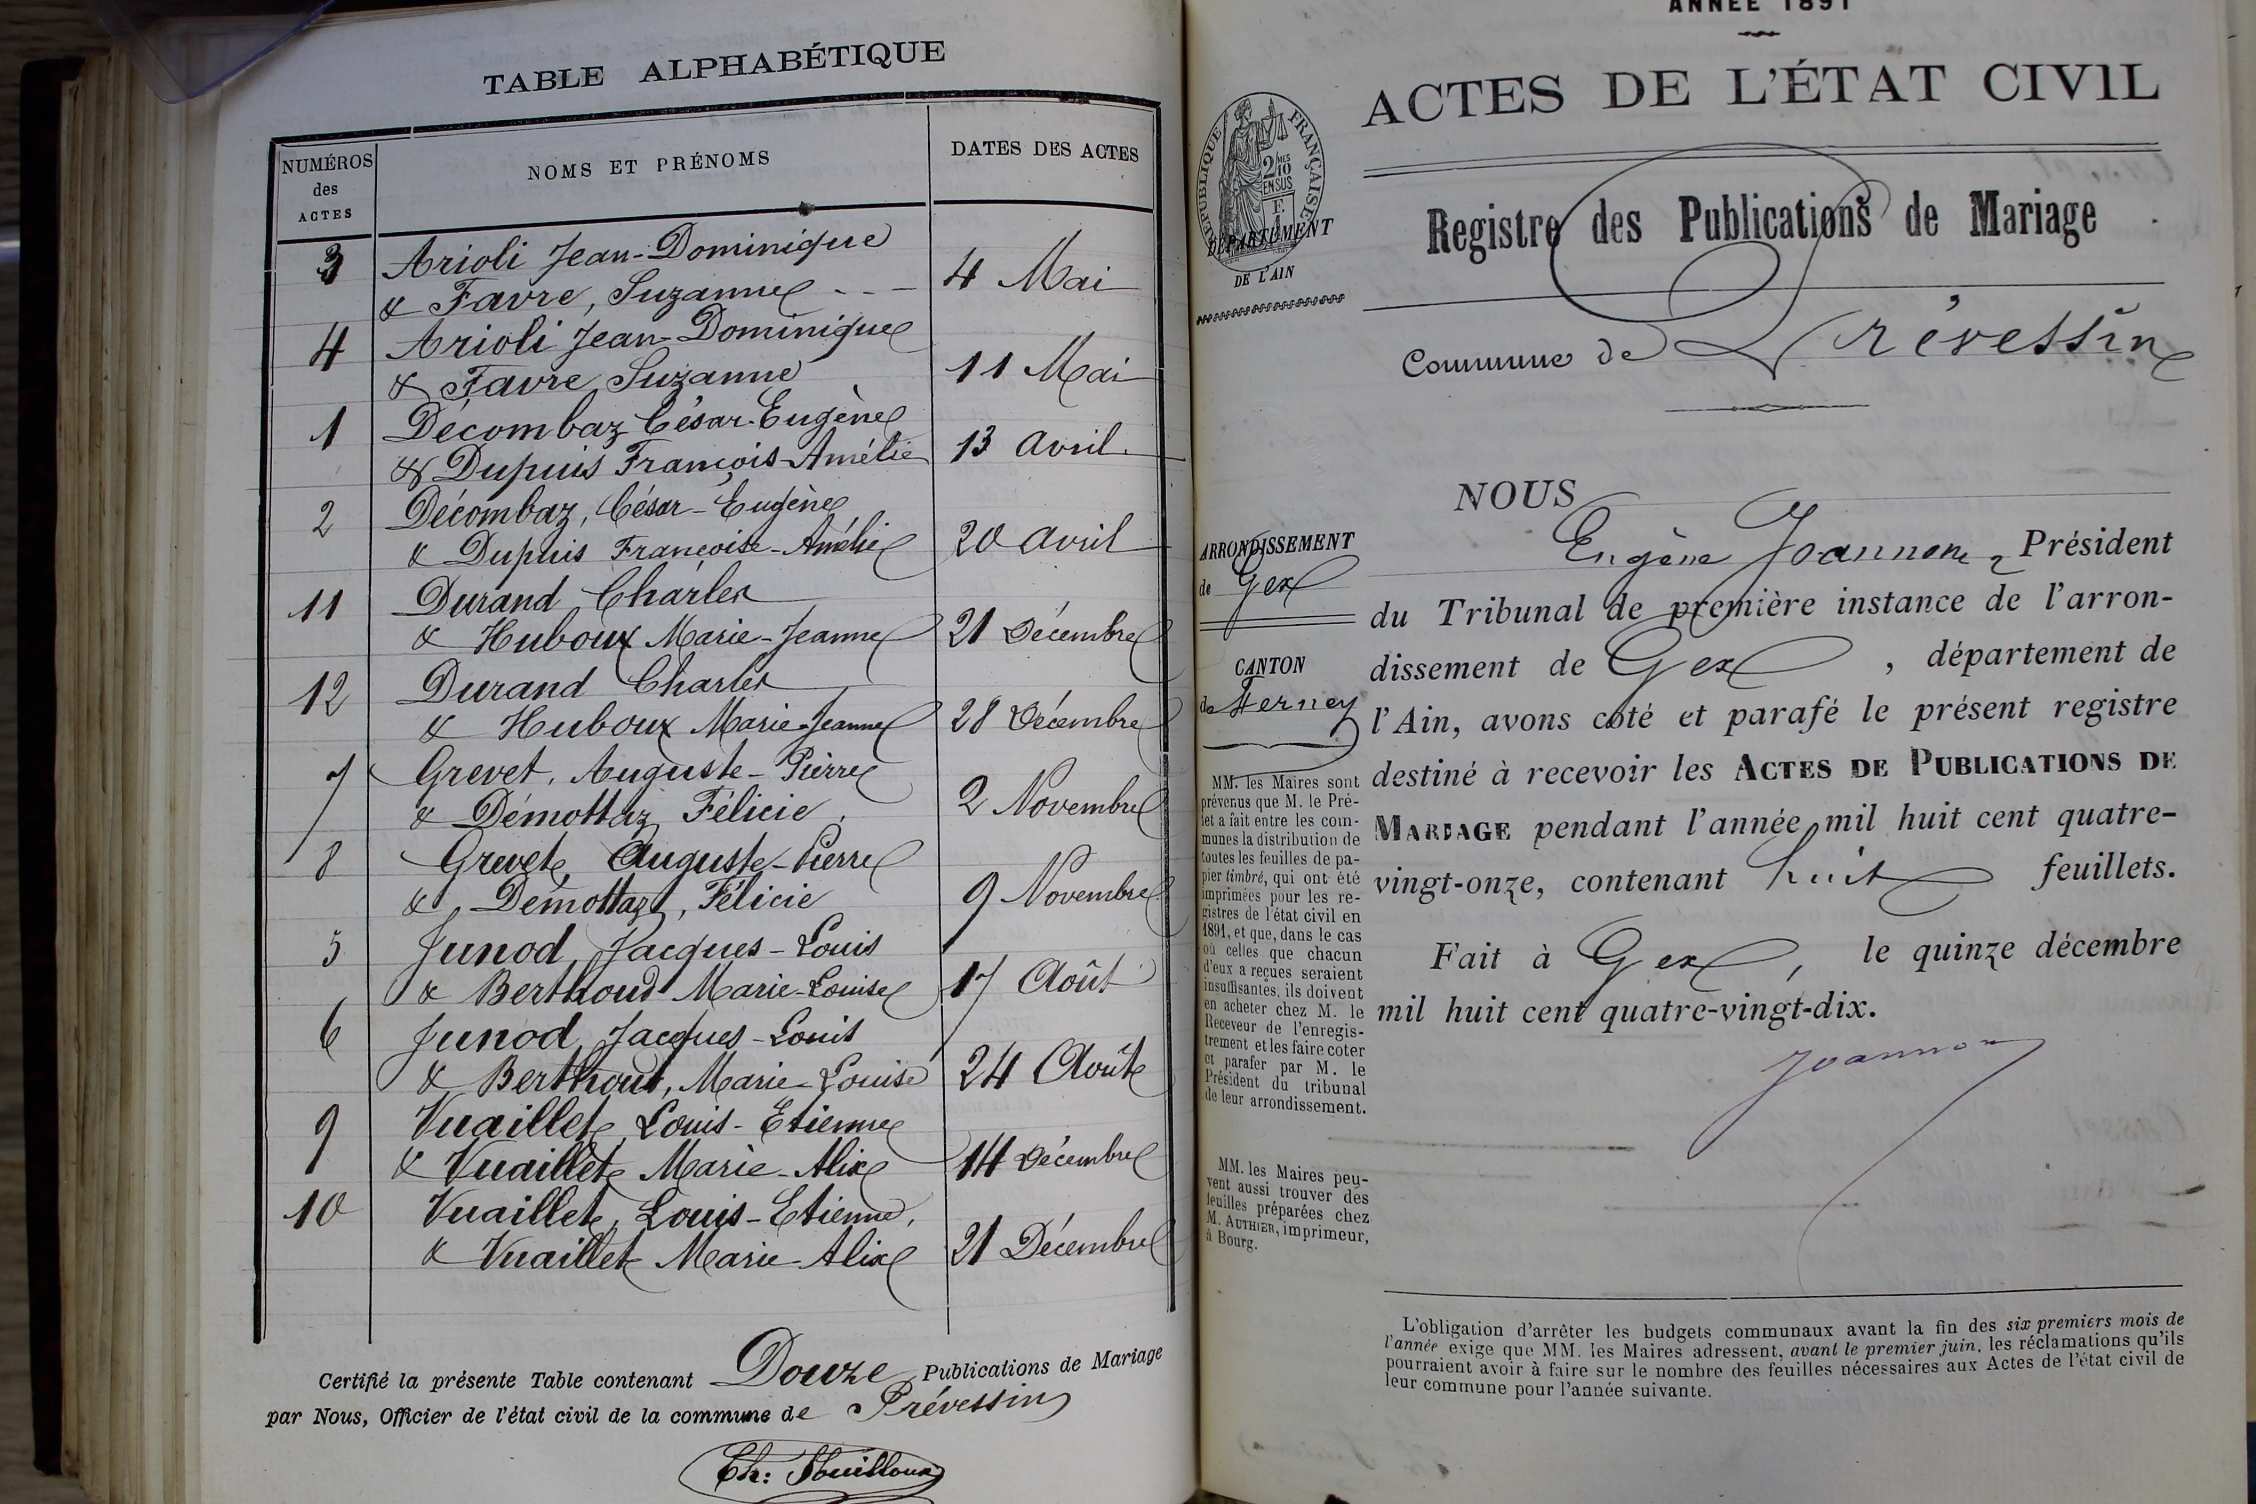 TABLE ALPHABÉTIQUE
NUMÉROS des ACTES
NOMS ET PRÉNOMS
DATES DES ACTES
3 Arioli Jean-Dominique
& Favre, Suzanne - - - 4 Mai
4 Arioli Jean-Dominique
& Favre, Suzanne 11 Mai
1 Décombaz César-Eugène
& Dupuis François-Amélie 13 avril.
2 Décombaz, César-Eugène
& Dupuis Françoise-Amélie 20 avril
11 Durand Charles
& Huboux Marie-Jeanne 21 Décembre
12 Durand Charles
& Huboux Marie-Jeanne 28 Décembre
7 Grevet, Auguste-Pierre
& Démottaz Félicie. 2 Novembre
8 Grevet, Auguste-Pierre
& Démottaz, Félicie 9 Novembre
5 Junod, Jacques-Louis
& Berthoud Marie-Louise 17 Août
6 Junod, Jacques-Louis
& Berthout, Marie-Louise 24 Août
9 Vuaillet, Louis-Etienne
& Vuaillet Marie-Alix 14 Décembre
10 Vuaillet, Louis-Etienne,
& Vuaillet Marie-Alix 21 Décembre
Certifié la présente Table contenant Douze Publications de Mariage
par Nous, Officier de l'état civil de la commune de Prévessin
ANNÉE 1891
ACTES DE L'ÉTAT CIVIL
RÉPUBLIQUE FRANÇAISE
2/10 MES
EN SUS
DÉPARTEMENT
DE L'AIN
Registre des Publications de Mariage
Commune de Prévessin
ARRONDISSEMENT
de Gex
CANTON
de Ferney
MM. les Maires sont
prévenus que M. le Pré-
fet a fait entre les com-
munes la distribution de
toutes les feuilles de pa-
pier timbré, qui ont été
imprimées pour les re-
gistres de l'état civil en
1891, et que, dans le cas
où celles que chacun
d'eux a reçues seraient
insuffisantes, ils doivent
en acheter chez M. le
Receveur de l'enregis-
trement et les faire coter
et parafer par M. le
Président du tribunal
de leur arrondissement.
MM. les Maires peu-
vent aussi trouver des
feuilles préparées chez
M. AUTHIER, imprimeur,
à Bourg.
NOUS
Eugène Joannon, Président
du Tribunal de première instance de l'arron-
dissement de Gex, département de
l'Ain, avons coté et parafé le présent registre
destiné à recevoir les ACTES DE PUBLICATIONS DE
MARIAGE pendant l'année mil huit cent quatre-
vingt-onze, contenant huit feuillets.
Fait à Gex, le quinze décembre
mil huit cent quatre-vingt-dix.
Joannon
L'obligation d'arrêter les budgets communaux avant la fin des six premiers mois de
l'année exige que MM. les Maires adressent, avant le premier juin, les réclamations qu'ils
pourraient avoir à faire sur le nombre des feuilles nécessaires aux Actes de l'état civil de
leur commune pour l'année suivante.